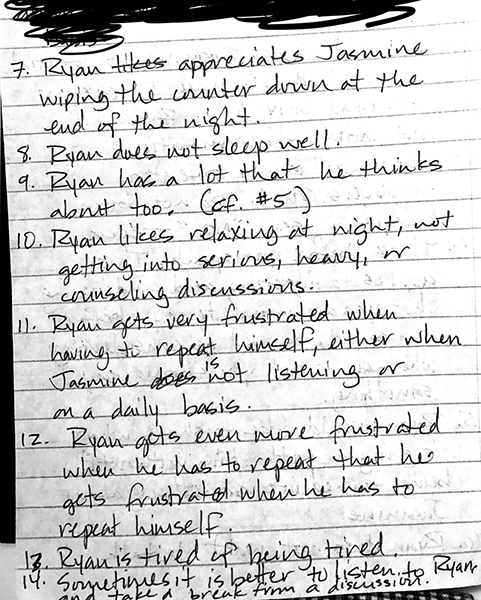 7. Ryan likes appreciates Jasmine
wiping the counter down at the
end of the night.
8. Ryan does not sleep well.
9. Ryan has a lot that he thinks
about too. (cf. #5)
10. Ryan likes relaxing at night, not
getting into serious, heavy, or
counseling discussions.
11. Ryan gets very frustrated when
having to repeat himself, either when
Jasmine does is not listening or
on a daily basis.
12. Ryan gets even more frustrated
when he has to repeat that he
gets frustrated when he has to
repeat himself.
13. Ryan is tired of being tired.
14. Sometimes it is better to listen to Ryan
and take a break from a discussion.